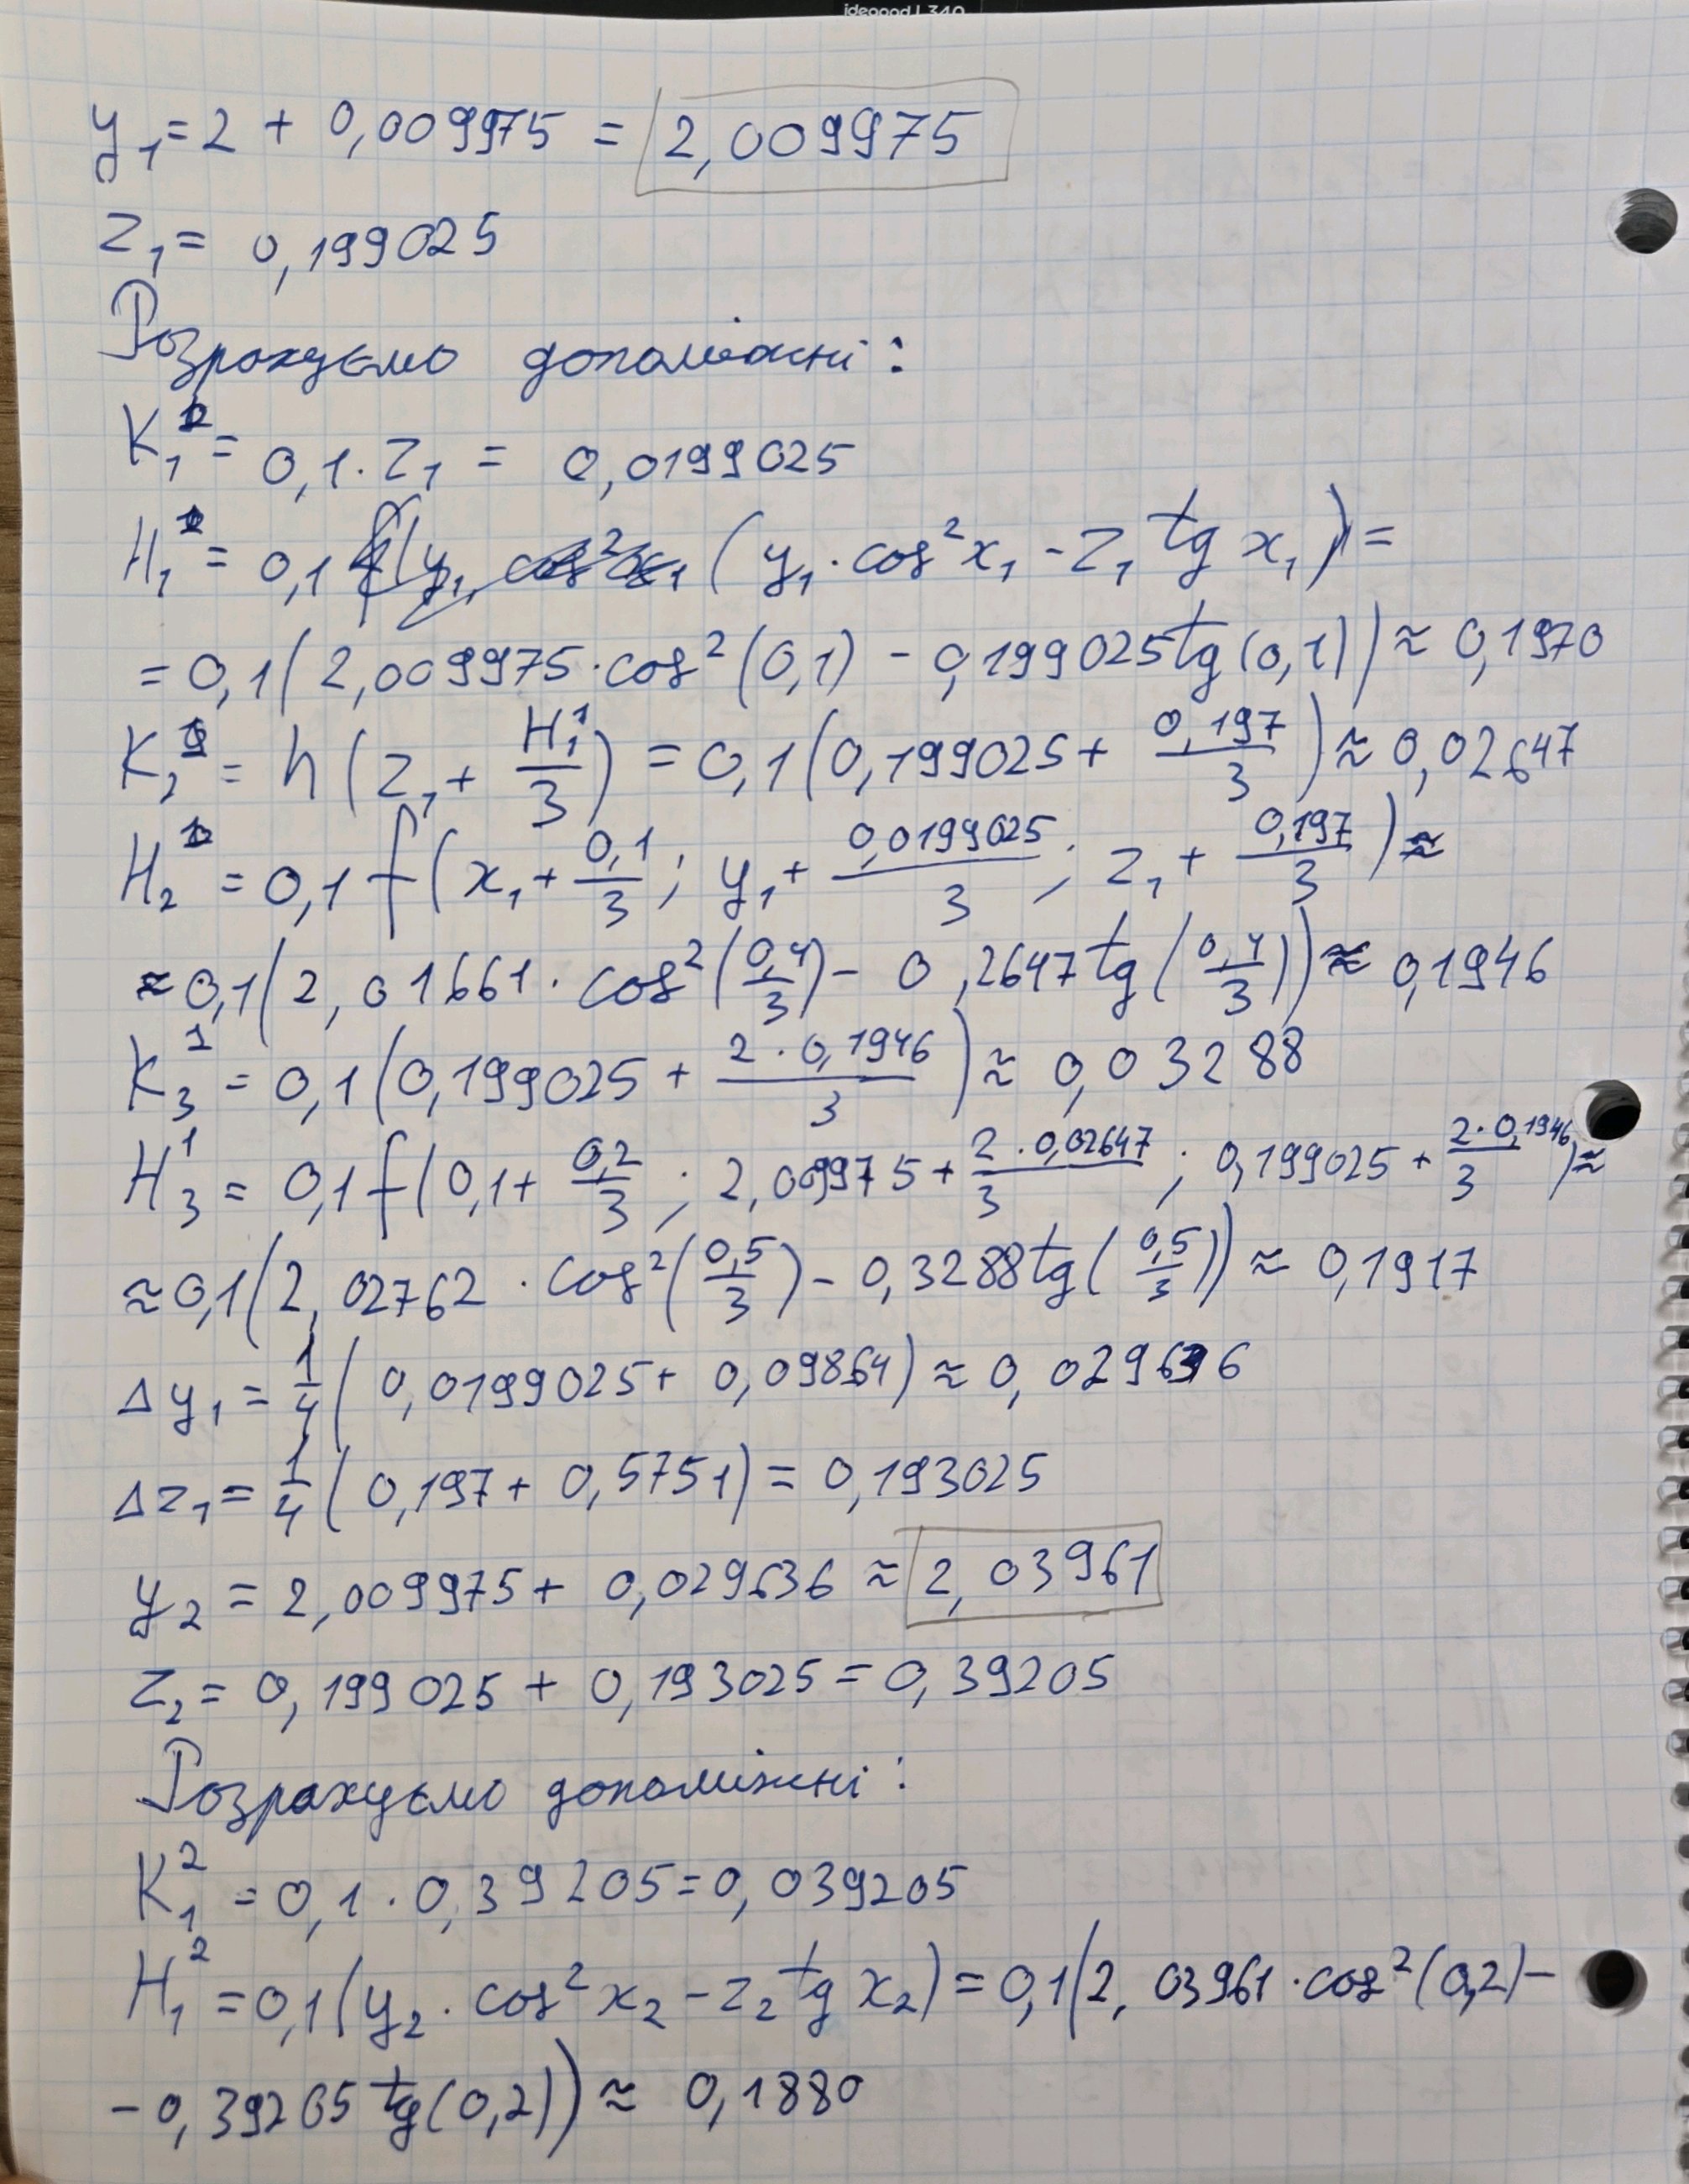 ideapad L340
y₁ = 2 + 0,009975 = 2,009975
z₁ = 0,199025
Розрахуємо допоміжні:
K₁¹ = 0,1 · z₁ = 0,0199025
H₁¹ = 0,1 (y₁ · cos²x₁ - z₁ tg x₁) =
= 0,1(2,009975 · cos²(0,1) - 0,199025 tg(0,1)) ≈ 0,1970
K₂¹ = h(z₁ + H₁¹/3) = 0,1(0,199025 + 0,197/3) ≈ 0,02647
H₂¹ = 0,1 f(x₁ + 0,1/3; y₁ + 0,0199025/3; z₁ + 0,197/3) ≈
≈ 0,1(2,01661 · cos²(0,4/3) - 0,2647 tg(0,4/3)) ≈ 0,1946
K₃¹ = 0,1(0,199025 + 2 · 0,1946/3) ≈ 0,03288
H₃¹ = 0,1 f(0,1 + 0,2/3; 2,009975 + 2 · 0,02647/3; 0,199025 + 2 · 0,1946/3) ≈
≈ 0,1(2,02762 · cos²(0,5/3) - 0,3288 tg(0,5/3)) ≈ 0,1917
Δy₁ = 1/4(0,0199025 + 0,09864) ≈ 0,029636
Δz₁ = 1/4(0,197 + 0,5751) = 0,193025
y₂ = 2,009975 + 0,029636 ≈ 2,03961
z₂ = 0,199025 + 0,193025 = 0,39205
Розрахуємо допоміжні:
K₁² = 0,1 · 0,39205 = 0,039205
H₁² = 0,1(y₂ · cos²x₂ - z₂ tg x₂) = 0,1(2,03961 · cos²(0,2) -
- 0,39205 tg(0,2)) ≈ 0,1880